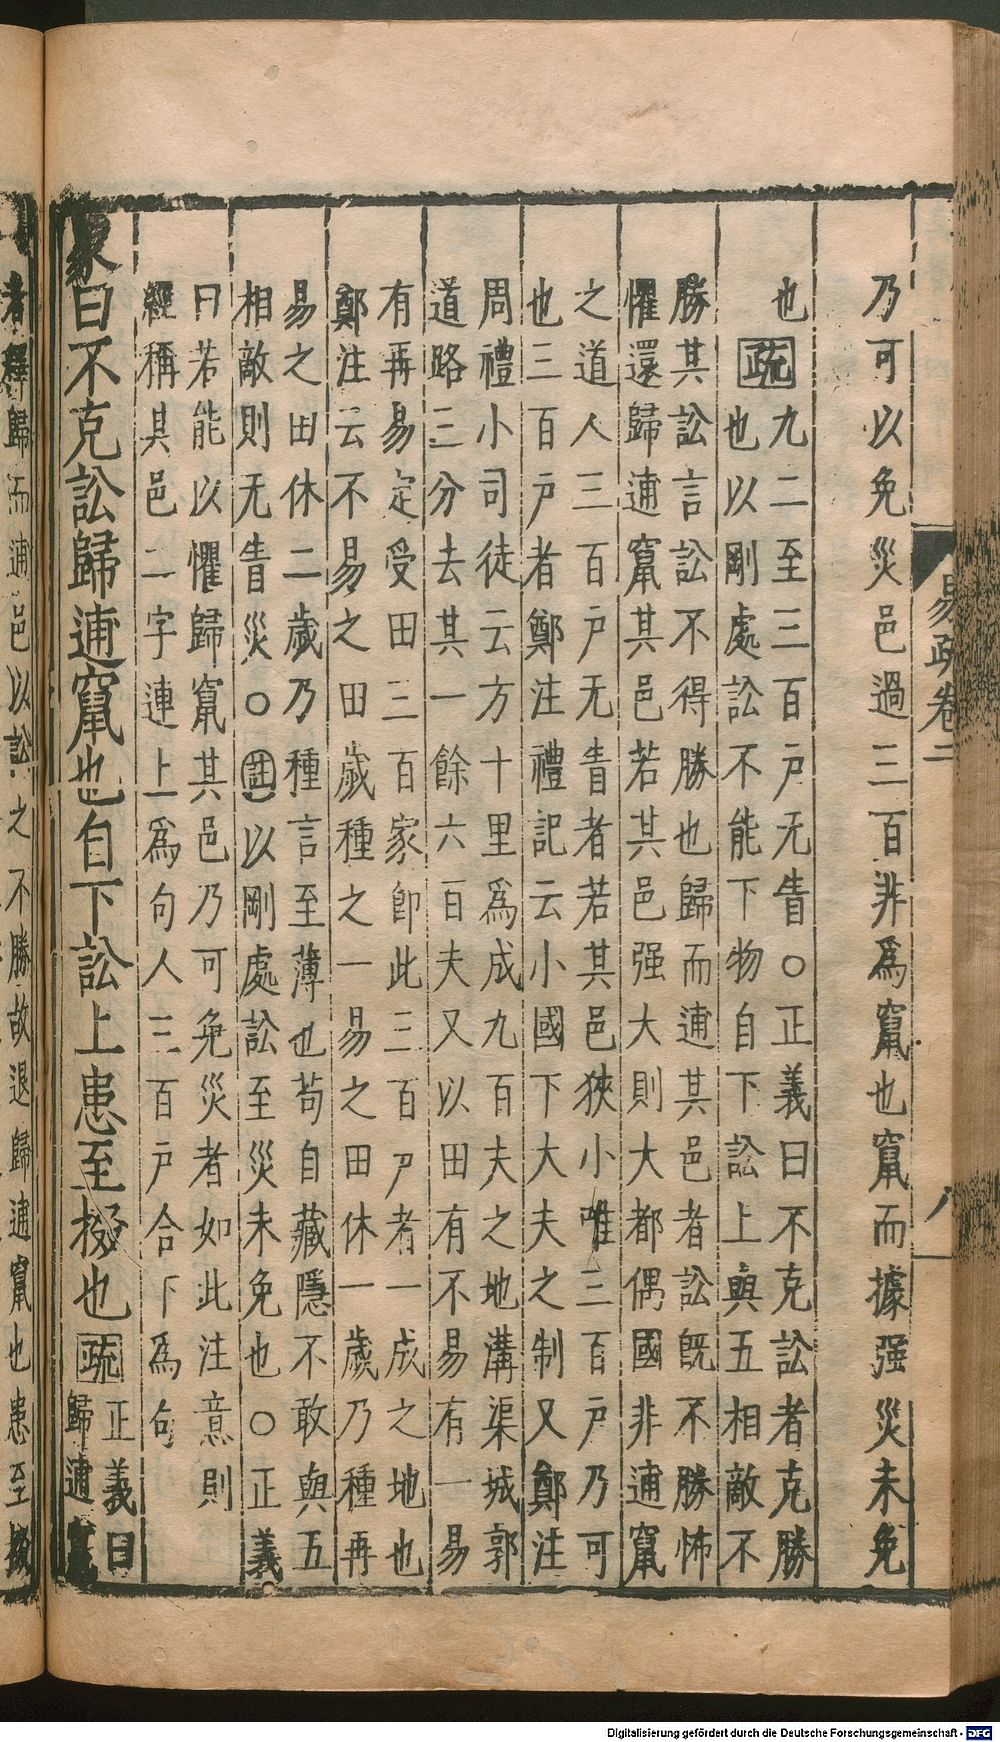 易疏卷二
八
乃可以免災邑過三百非爲竄也竄而據强災未免
也疏九二至三百戶无眚○正義曰不克訟者克勝
也以剛處訟不能下物自下訟上與五相敵不
勝其訟言訟不得勝也歸而逋其邑者訟既不勝怖
懼還歸逋竄其邑若其邑强大則大都偶國非逋竄
之道人三百戶无眚者若其邑狹小唯三百戶乃可
也三百戶者鄭注禮記云小國下大夫之制又鄭注
周禮小司徒云方十里爲成九百夫之地溝渠城郭
道路三分去其一餘六百夫又以田有不易有一易
有再易定受田三百家即此三百戶者一成之地也
鄭注云不易之田歲種之一易之田休一歲乃種再
易之田休二歲乃種言至薄也苟自藏隱不敢與五
相敵則无眚災○註以剛處訟至災未免也○正義
曰若能以懼歸竄其邑乃可免災者如此注意則
經稱其邑二字連上爲句人三百戶合下爲句
象曰不克訟歸逋竄也自下訟上患至掇也疏正義曰
歸逋竄
者釋歸而逋邑以訟之不勝故退歸逋竄也患至掇
Digitalisierung gefördert durch die Deutsche Forschungsgemeinschaft - DFG